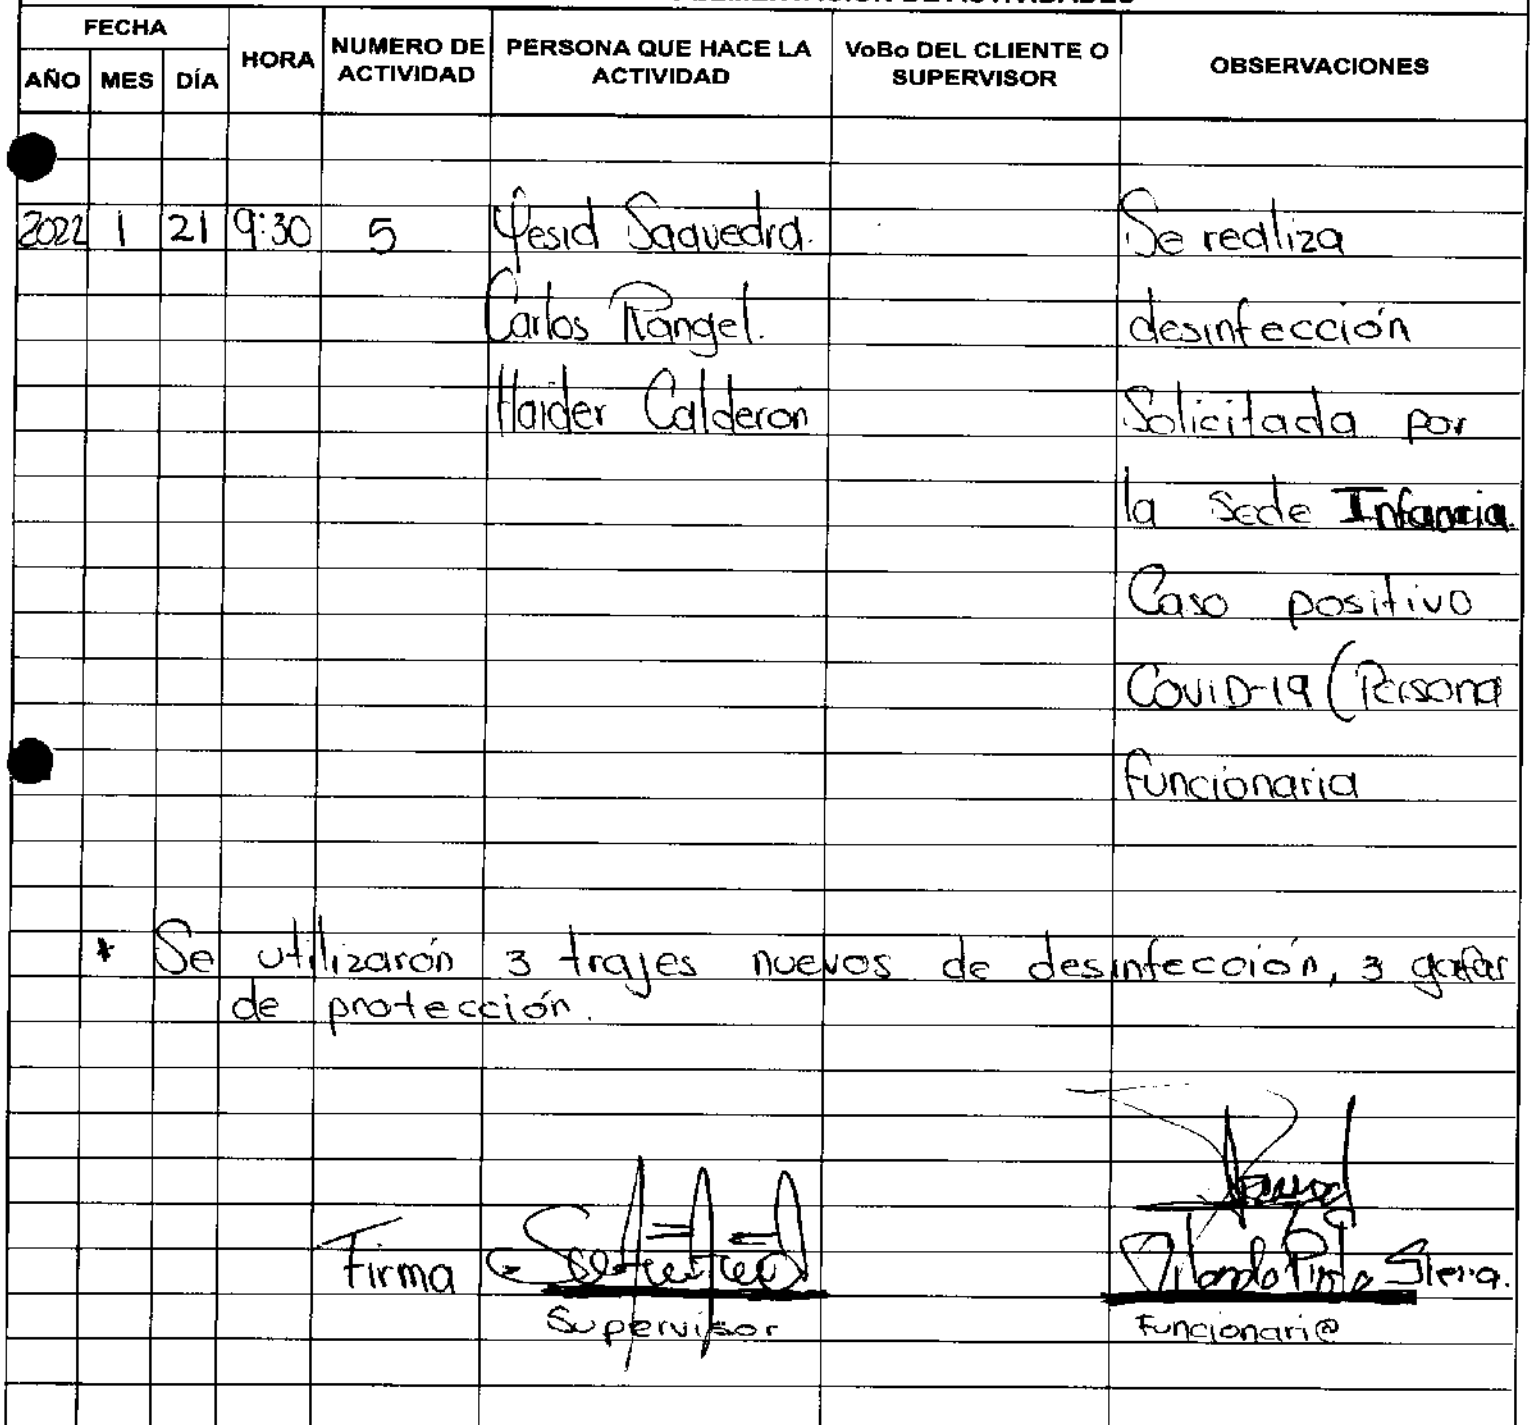 FECHA
HORA
NUMERO DE ACTIVIDAD
PERSONA QUE HACE LA ACTIVIDAD
VoBo DEL CLIENTE O SUPERVISOR
OBSERVACIONES
AÑO MES DÍA
2022 1 21 9:30 5 Yesid Saavedra. Se realiza
Carlos Rangel. desinfección
Haider Calderon Solicitada por
la Sede Infancia.
Caso positivo
COVID-19 (Persona
funcionaria
* Se utilizarón 3 trajes nuevos de desinfección, 3 gafas
de protección.
Firma
Supervisor Funcionari@